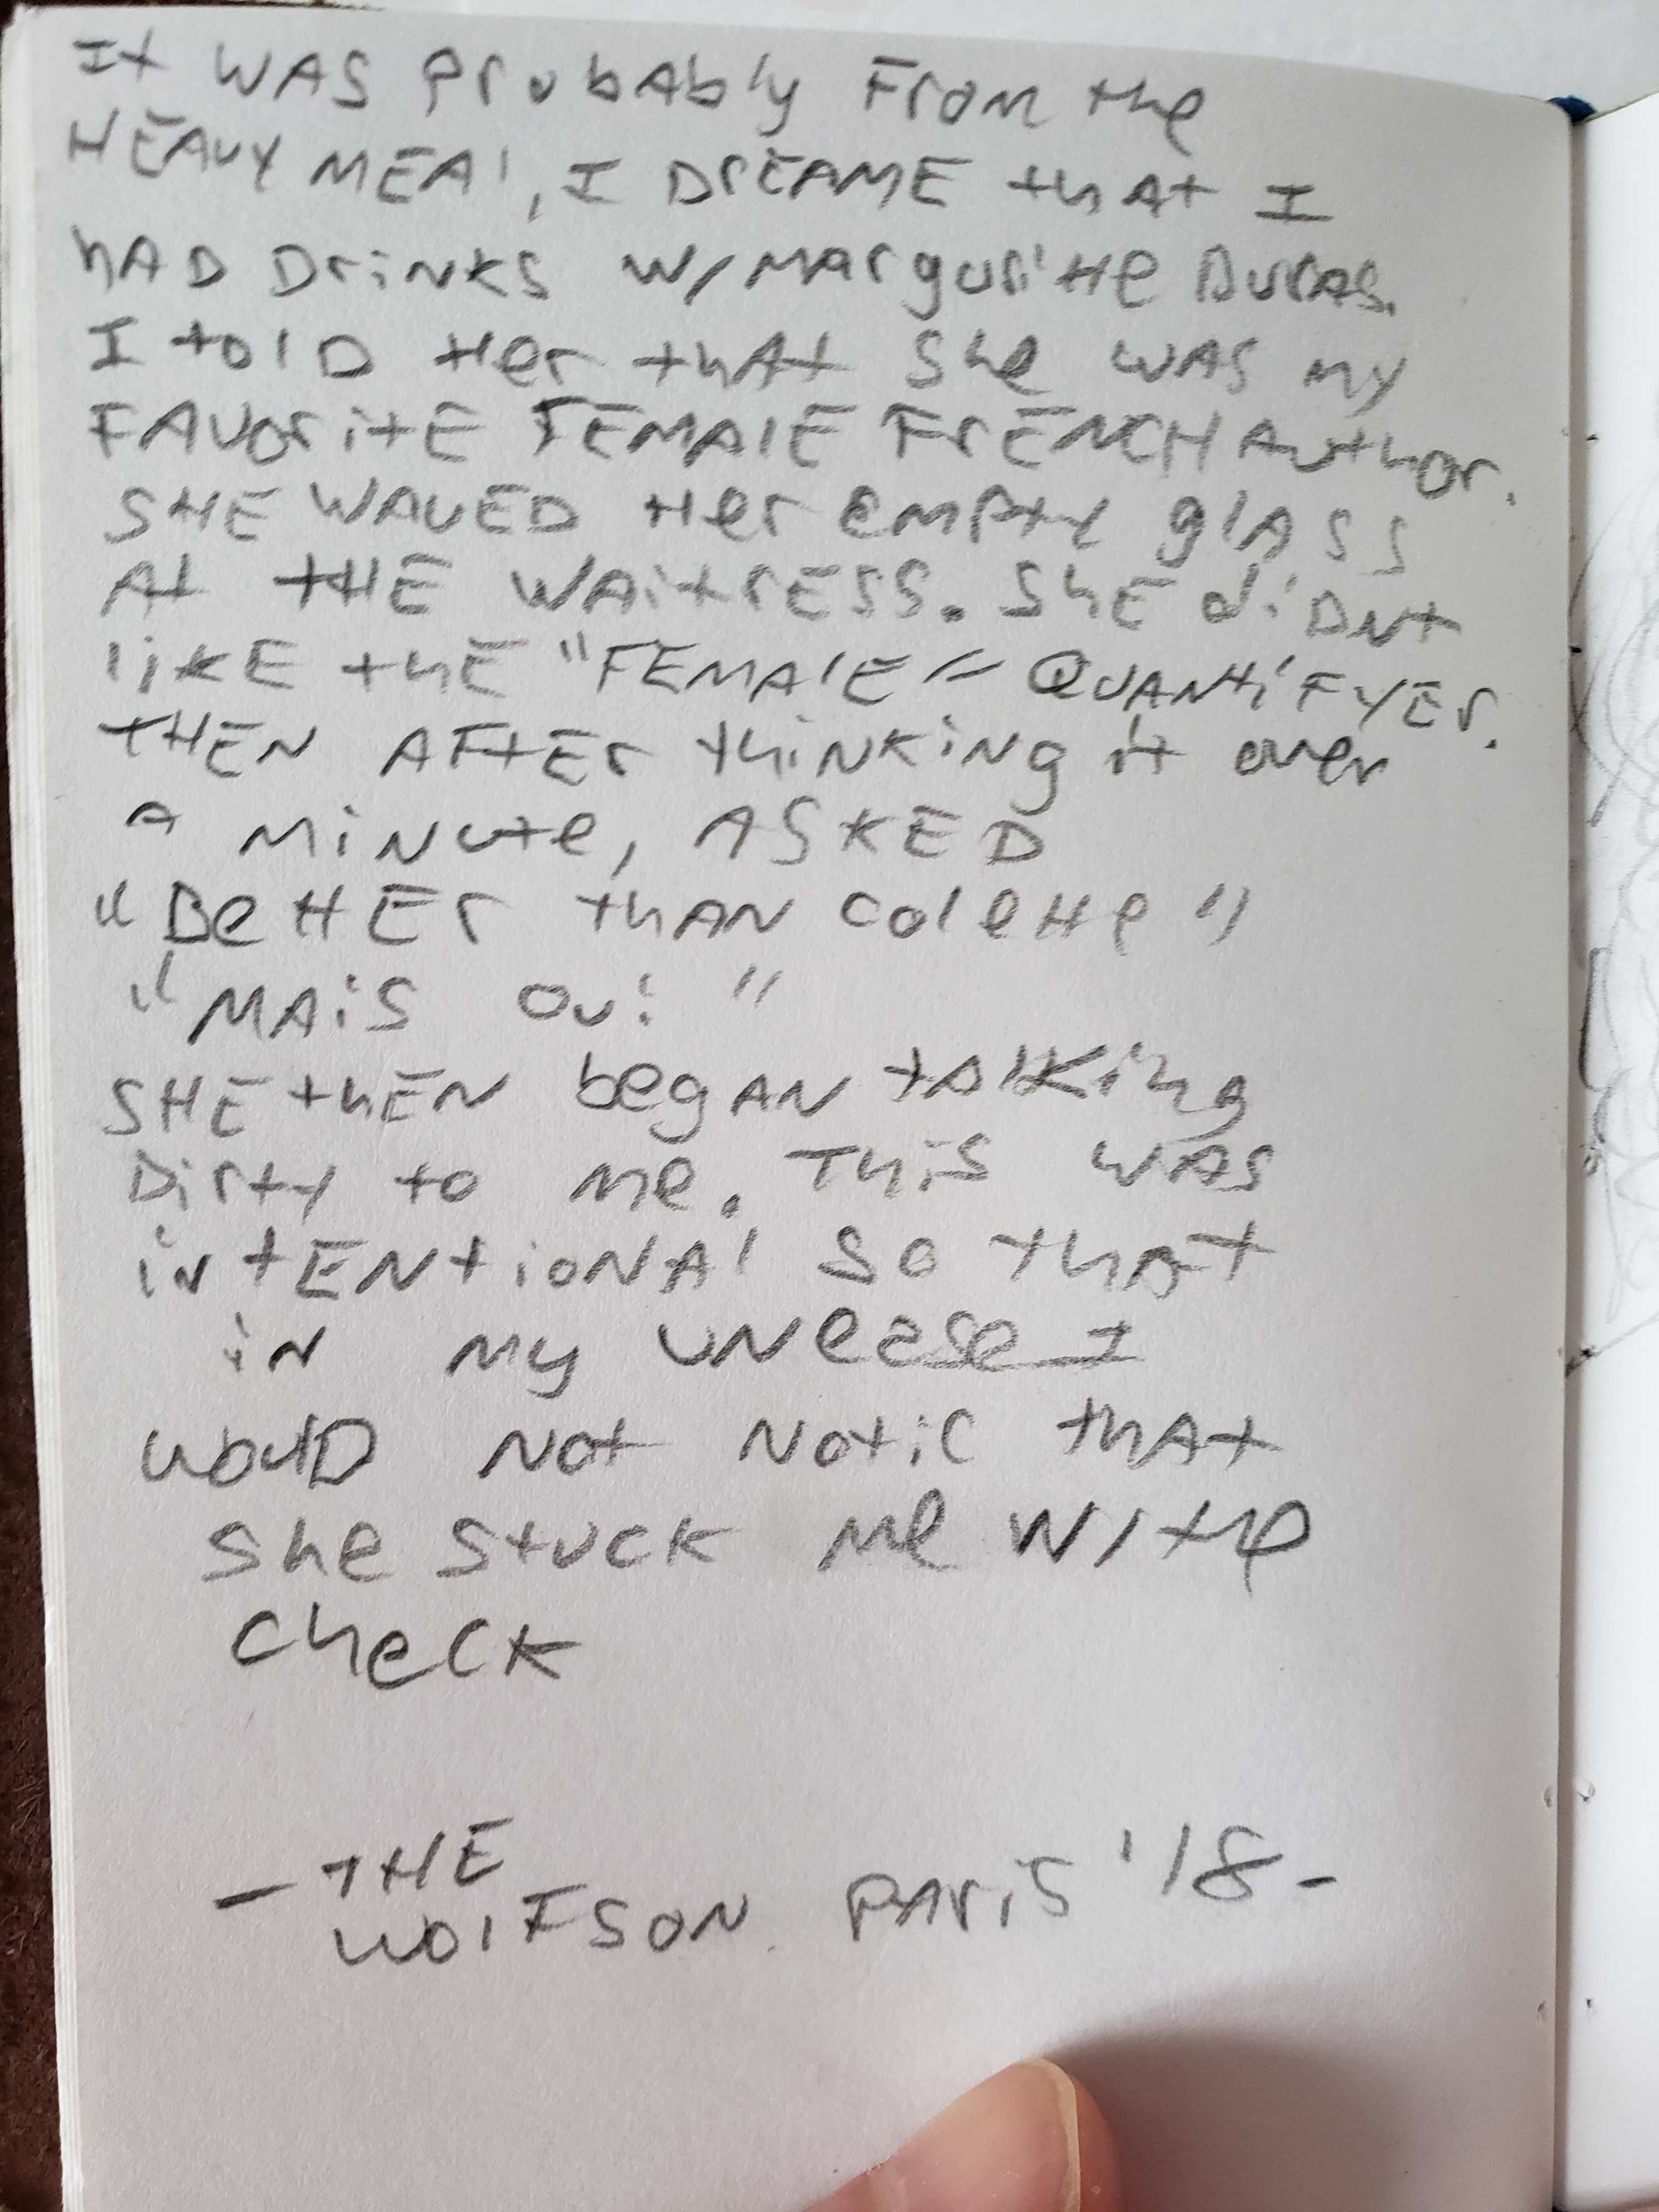 It was probably from the
heavy meal, I dreame that I
had drinks w/ Marguritte Duras.
I told her that she was my
favorite female French author.
She waved her empty glass
at the waitress. She didnt
like the "female" quantifyer.
Then after thinking it over
a minute, asked
"Better than Colette"
"Mais oui"
She then began talking
dirty to me. This was
intentional so that
in my unease I
would not notic that
she stuck me w/ the
check
- The
Wolfson Paris '18 -